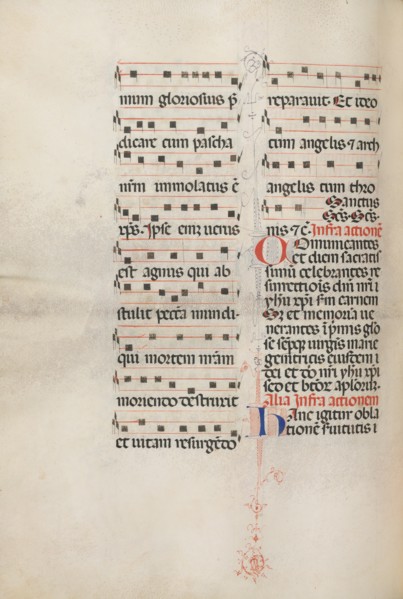 mum gloriosius p̄
dicare cum pascha
nr̄m immolatus ē
xp̄s. Ipse eni᷑ verus
est agnus qui ab
stulit pecc̄a mundi
qui mortem nr̄am
moriendo destruxit
et vitam resurgēdo
reparauit. Et ideo
cum angelis ⁊ arch
angelis cum thro
Sanctus
Sc̄s. Sc̄s.
nis ⁊ c̄. Infra actionē
Comunicantes
et diem sacratis
simū celebrantes re
surrectiōis dn̄i nr̄i
yh̄u xp̄i s̄m carnem
Sꝫ et memoria ue
nerantes ip̄mis glo
se semp̄qꝫ uirgīs marie
genitricis eiusdem
dei et dn̄i nr̄i yh̄u xp̄i
sed et btōꝝ aplōꝝ
Alia Infra actionem
Hanc igitur obla
tionē seruitutis